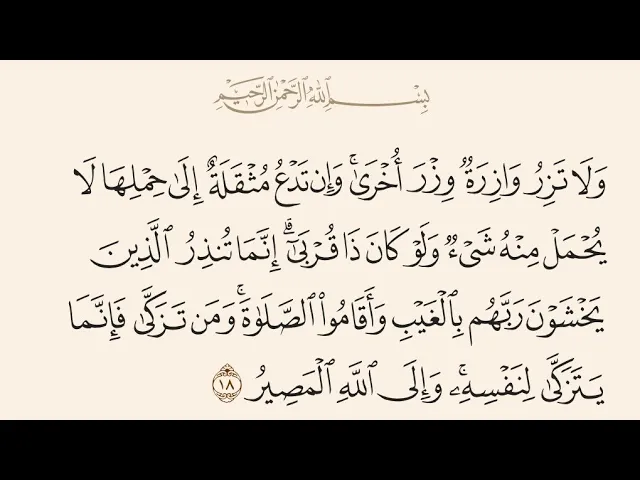 بِسْمِ اللَّهِ الرَّحْمَٰنِ الرَّحِيمِ
وَلَا تَزِرُ وَازِرَةٌ وِزْرَ أُخْرَىٰ ۚ وَإِن تَدْعُ مُثْقَلَةٌ إِلَىٰ حِمْلِهَا لَا
يُحْمَلْ مِنْهُ شَىْءٌ وَلَوْ كَانَ ذَا قُرْبَىٰٓ ۗ إِنَّمَا تُنذِرُ ٱلَّذِينَ
يَخْشَوْنَ رَبَّهُم بِٱلْغَيْبِ وَأَقَامُوا۟ ٱلصَّلَوٰةَ ۚ وَمَن تَزَكَّىٰ فَإِنَّمَا
يَتَزَكَّىٰ لِنَفْسِهِۦ ۚ وَإِلَى ٱللَّهِ ٱلْمَصِيرُ ١٨